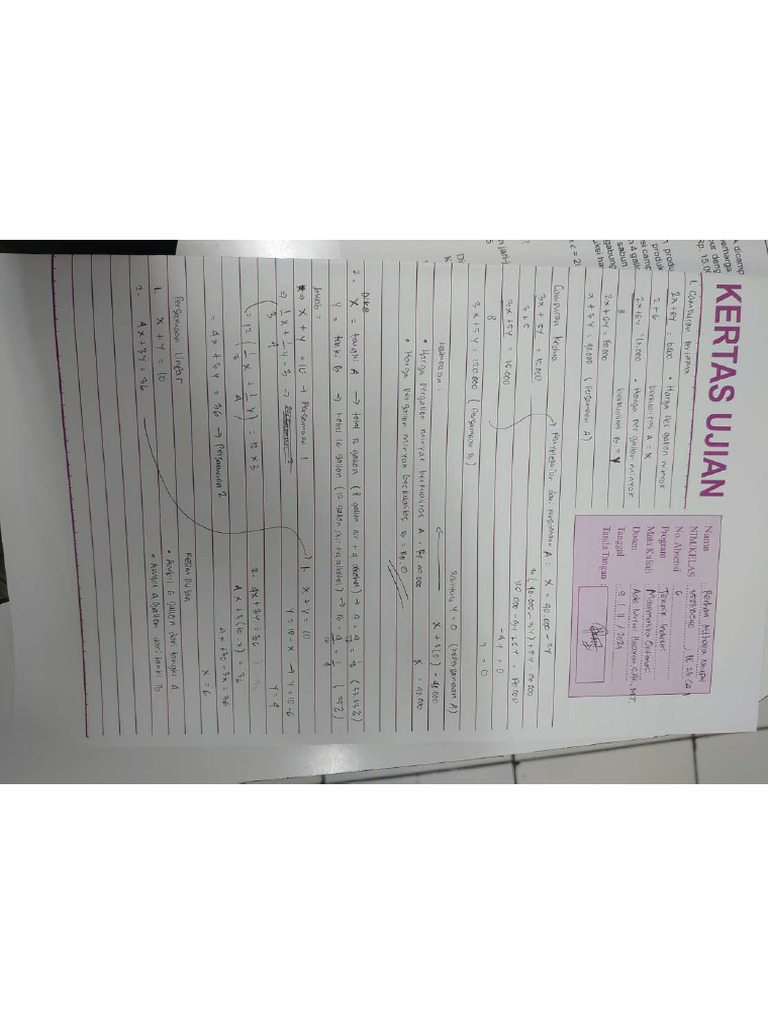 KERTAS UJIAN
Nama :
NIM/KELAS :
No. Absensi : 6
Program : Teknik Industri
Mata Kuliah : Matematika Optimasi
Dosen :
Tanggal : 9 / 11 / 2024
Tanda Tangan :
1. Campuran Pertama
2x+6y = • Harga per galon minyak
2+6 berkualitas A = x
2x+6y = • Harga per galon minyak
8 berkualitas B = y
2x+6y =
x + 3y = 40.000 ( Persamaan A)
Campuran Kedua
3x + 5y = 15.000
3+5
3x+5y = 15.000
8
3x+5y = 120.000 ( Persamaan B)
→ Penyelesaian dari persamaan A : x = 40.000 - 3y
3 ( 40.000 - 3y) + 5y = 120.000
120.000 - 9y + 5y = 120.000
-4y = 0
y = 0
Substitusi y = 0 (ke persamaan A)
x + 3(0) = 40.000
x = 40.000
Kesimpulan :
• Harga pergalon minyak berkualitas A = Rp. 40.000
• Harga per galon minyak berkualitas B = Rp. 0
2. Dike
x = tangki A → total 12 galon (8 galon air + 4 alkohol) → A =
y = tanki B → total 16 galon (12 galon air + 4 alkohol) → B = 4 = 1 ( 25%)
Jawab =
→ x + y = 10 → Persamaan 1
→ 1/3 x + 1/4 y = 3 → Persamaan 2
= 12 ( 1/3 x + 1/4 y) = 12 x 3
= 4x + 3y = 36 → Persamaan 2
Persamaan Linear
1. x + y = 10
2. 4x + 3y = 36
→ 1. x + y = 10
y = 10 - x → y = 10 - 6
y = 4
2. 4x + 3y = 36
4x + 3(10 - x) = 36
4x + 30 - 3x = 36
x = 6
Kesimpulan
• Ambil 6 galon dari tangki A
• Ambil 4 galon dari tanki B